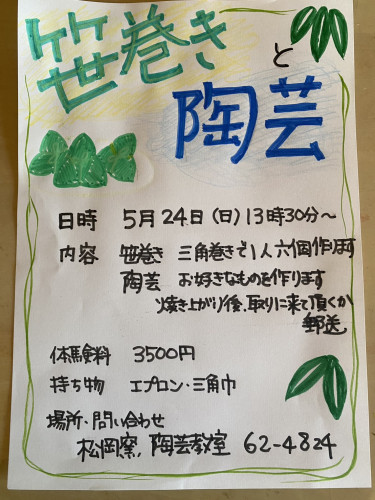 笹巻き
と
陶芸
日時 5月24日(日)13時30分〜
内容 笹巻き 三角巻きで1人六個作ります
陶芸 お好きなものを作ります
焼き上がり後、取りに来て頂くか
郵送
体験料 3500円
持ち物 エプロン・三角巾
場所・問い合わせ
松岡窯, 陶芸教室 62-4824